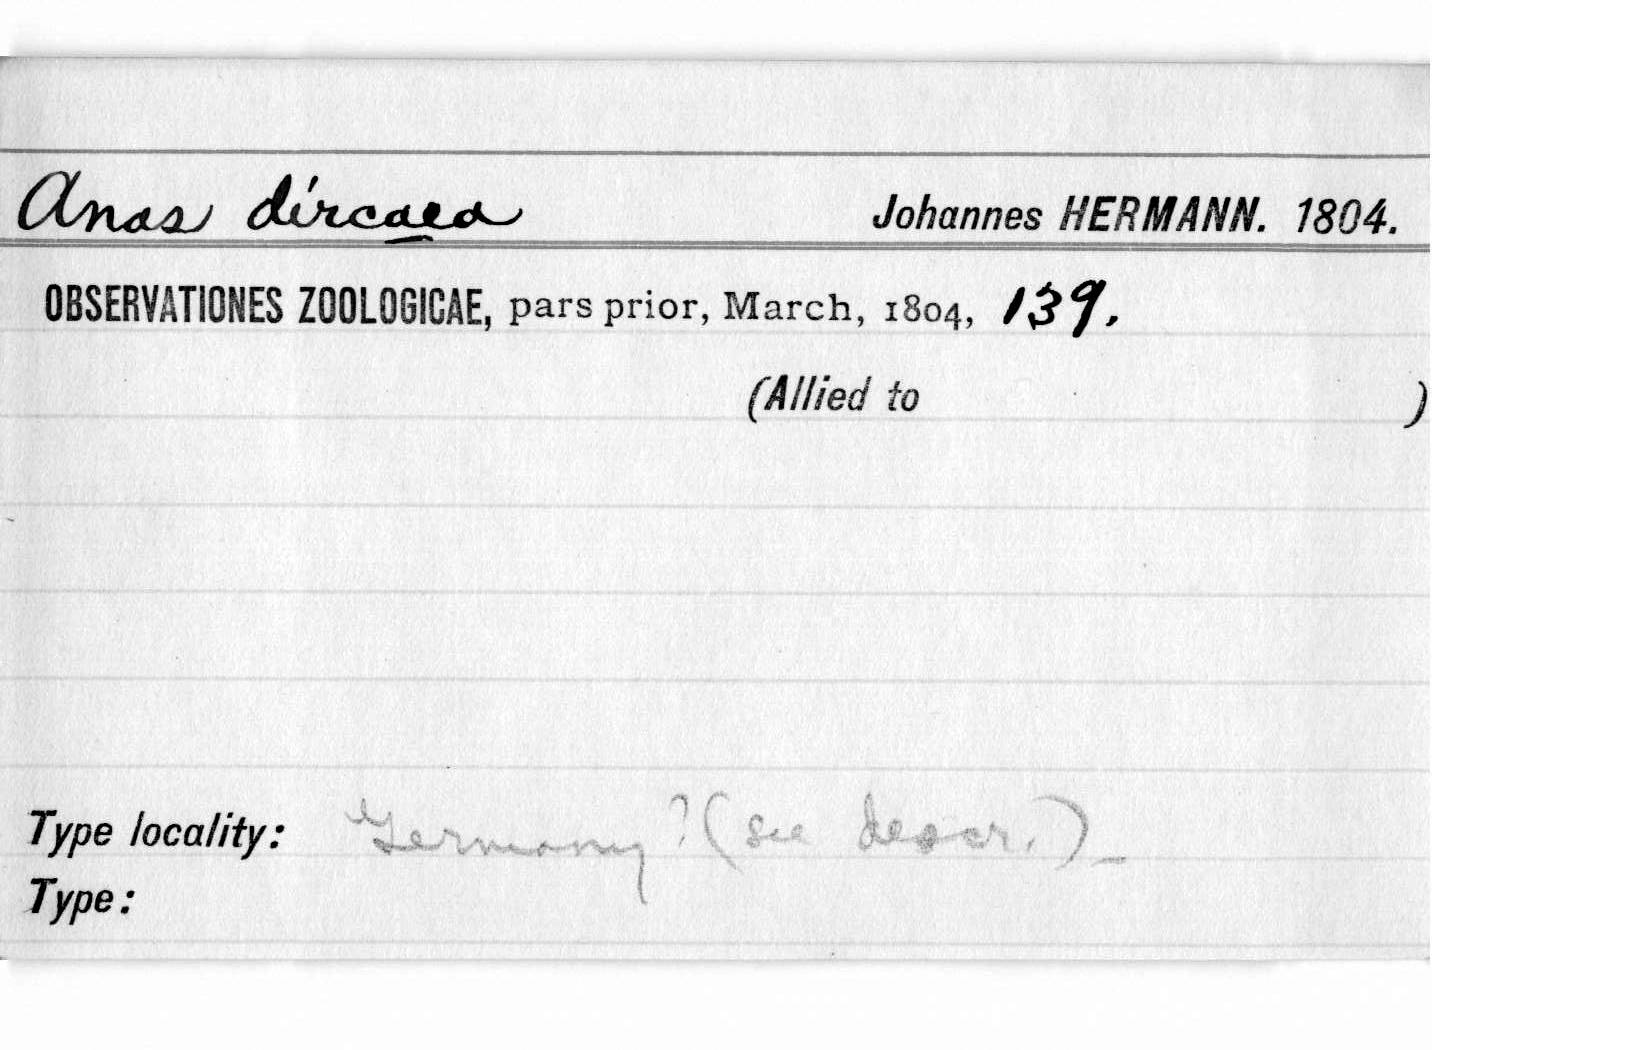 Anas dircaea Johannes HERMANN. 1804.
OBSERVATIONES ZOOLOGICAE, pars prior, March, 1804, 139.
(Allied to )
Type locality: Germany? (see descr.)_
Type: